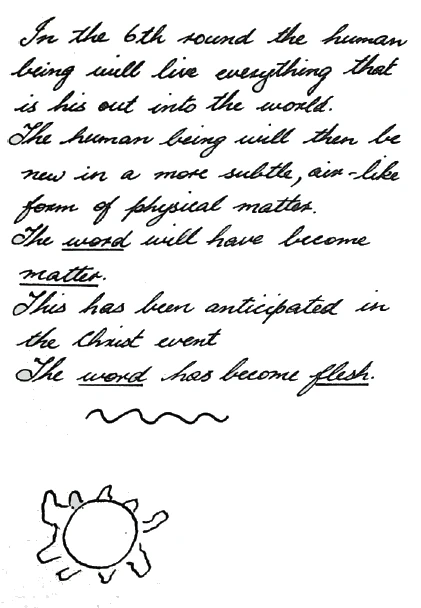 In the 6th round the human
being will live everything that
is his out into the world.
The human being will then be
new in a more subtle, air-like
form of physical matter.
The word will have become
matter.
This has been anticipated in
the Christ event
The word has become flesh.